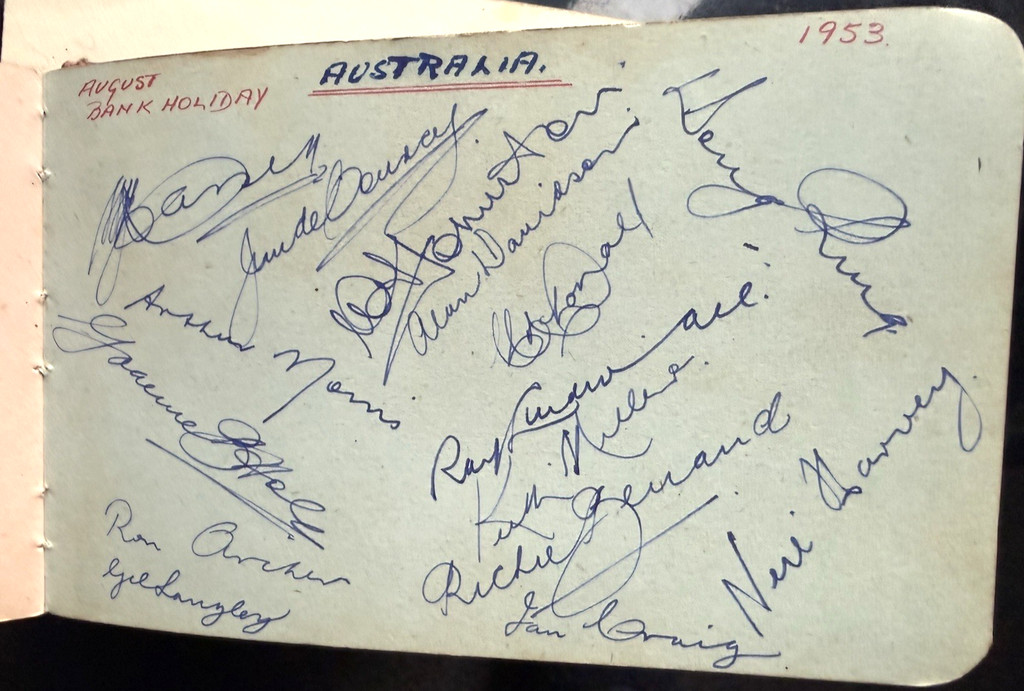 1953.
AUGUST
BANK HOLIDAY
AUSTRALIA.
Lindsay Hassett
Jim de Courcy
W A Johnston
Alan Davidson
Doug Ring
Arthur Morris
Graeme B Hole
Ray Lindwall
Keith Miller
Richie Benaud
Neil Harvey
Ron Archer
Gil Langley
Ian Craig